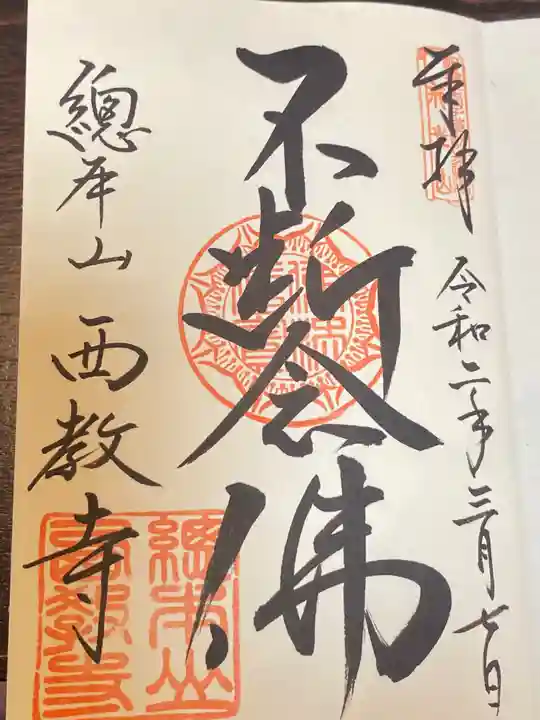 奉拝 令和二年三月七日
不断念佛
總本山 西教寺
總本山西教寺